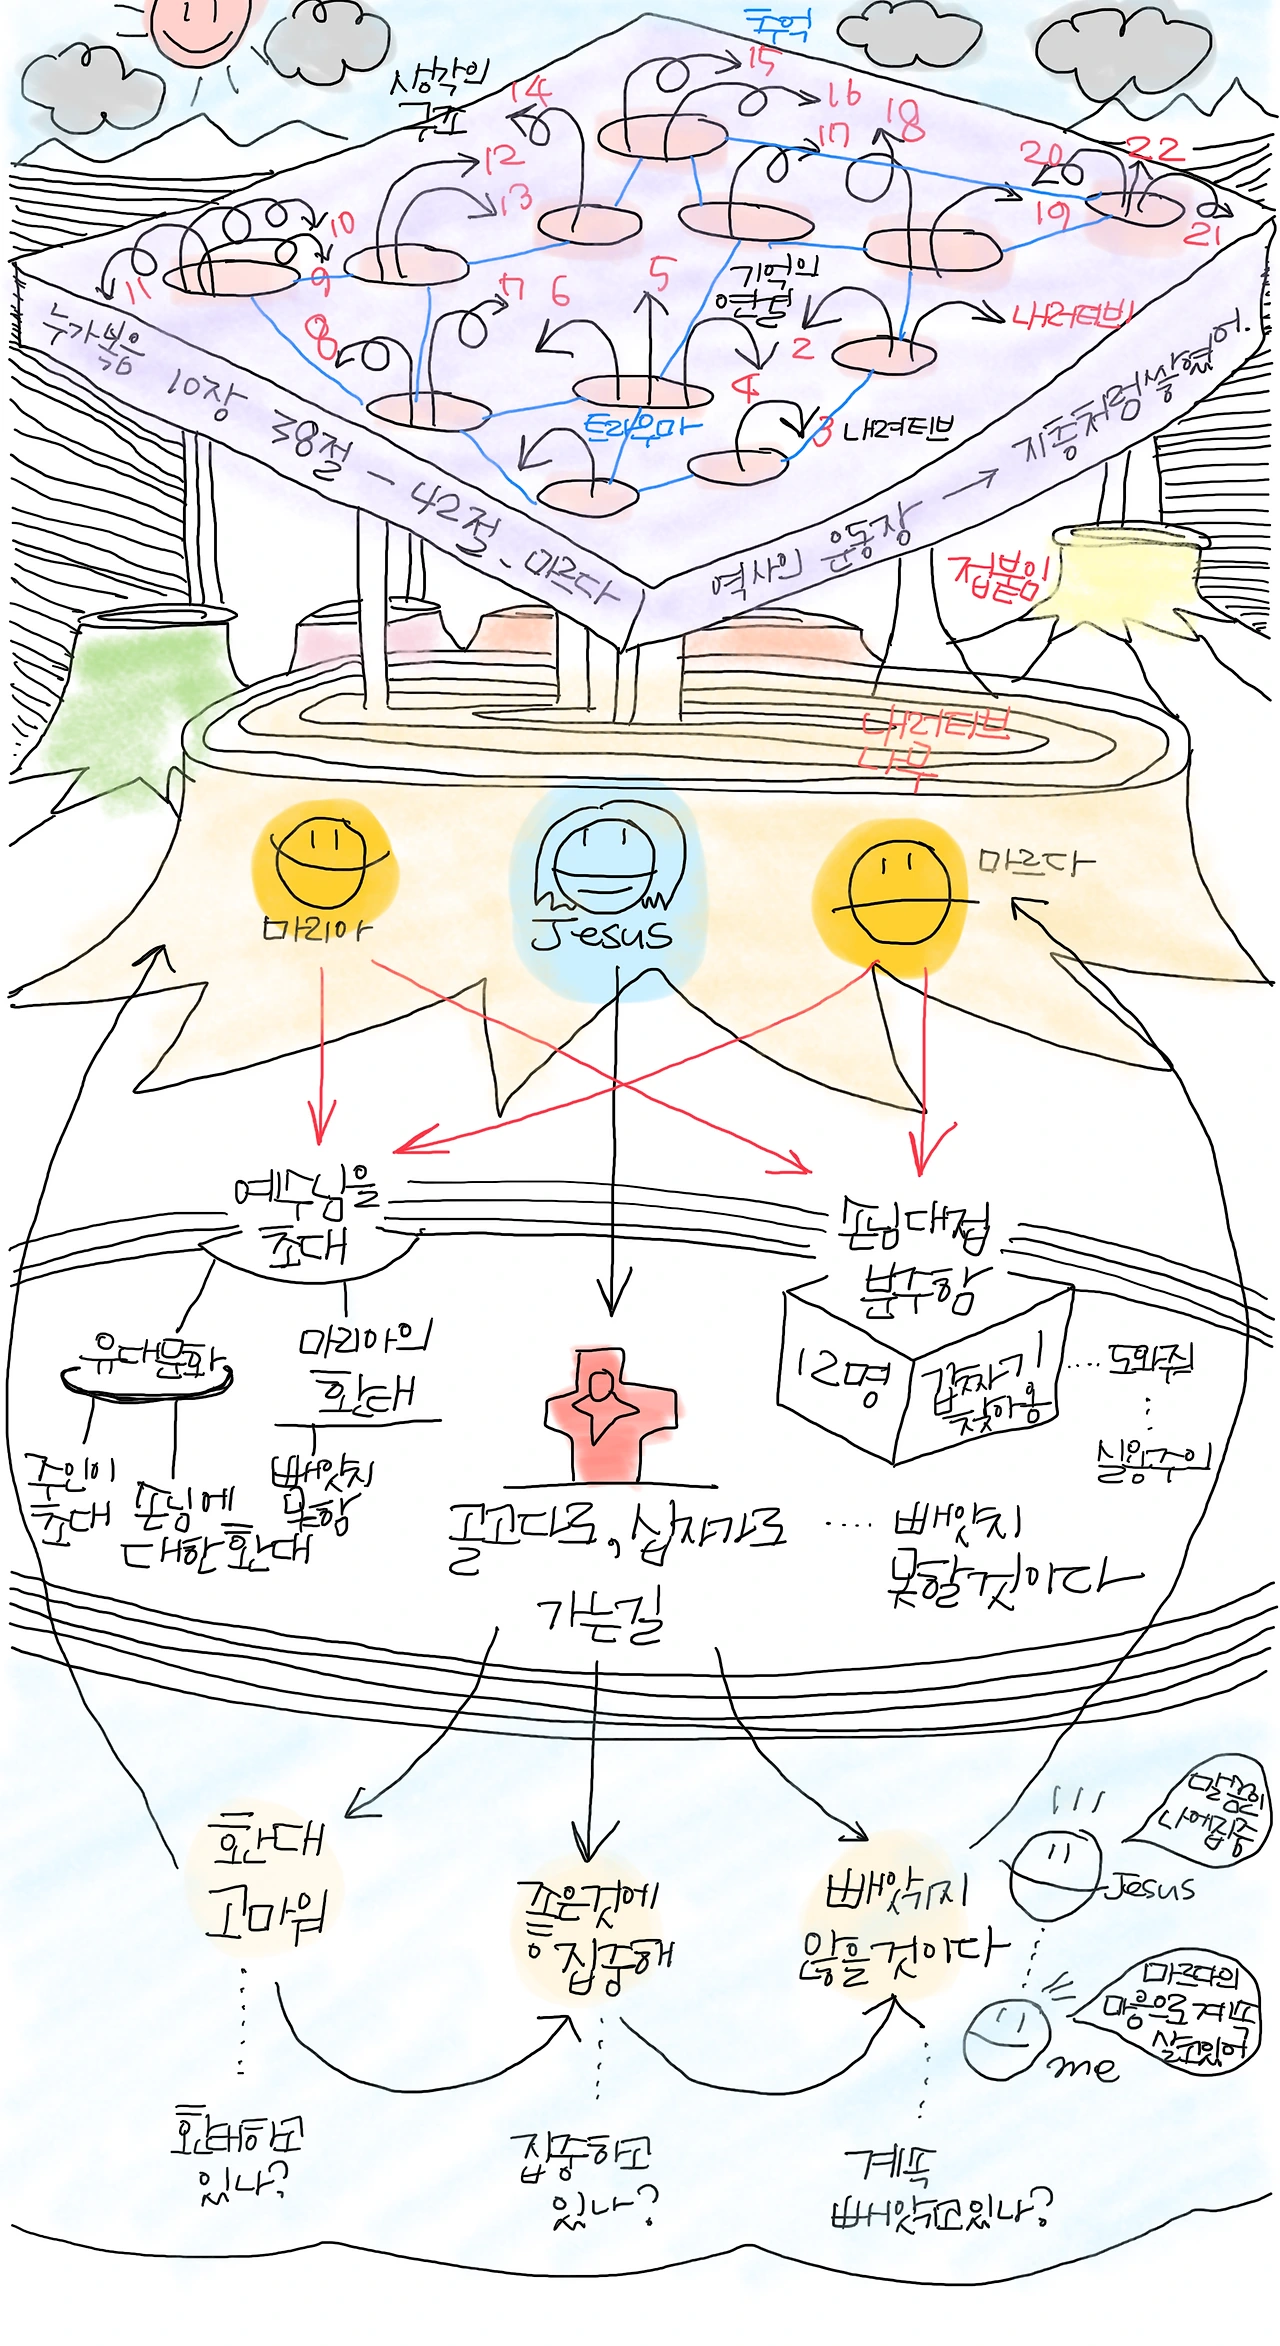 추억
생각의
구조
14
15
16
17
18
12
13
20
22
19
21
10
11
9
8
7
6
5
기억의
연결
2
내러티브1
4
트라우마
3
내러티브
누가복음 10장 38절 - 42절. 마르다
역사의 운동장 → 지층처럼 쌓였어.
접붙임
내러티브
나무
마리아
Jesus
마르다
예수님을
초대
손님대접
분주함
유대문화
마리아의
환대
12명
갑자기
찾아옴
도와줘
실용주의
주인이
초대
손님에
대한 환대
빼앗지
못함
골고다로, 십자가로
가는길
빼앗지
못할것이다
환대
고마워
좋은것에
집중해
빼앗기지
않을것이다
말씀이
나에집중
Jesus
마르다의
마음으로 계속
살고있어
me
환대하고
있나?
집중하고
있나?
계속
빼앗고있나?